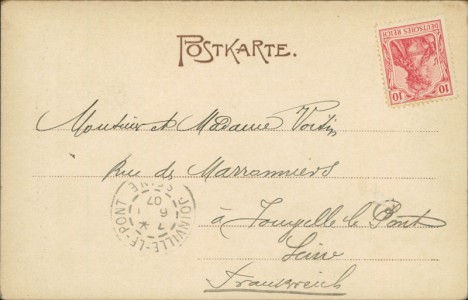 POSTKARTE.
DEUTSCHES REICH
10 10
Monsieur et Madame Voisin
Rue des Marronniers
à Joinville le Pont
Seine
Frankreich
JOINVILLE-LE-PONT
SEINE
7
6
07